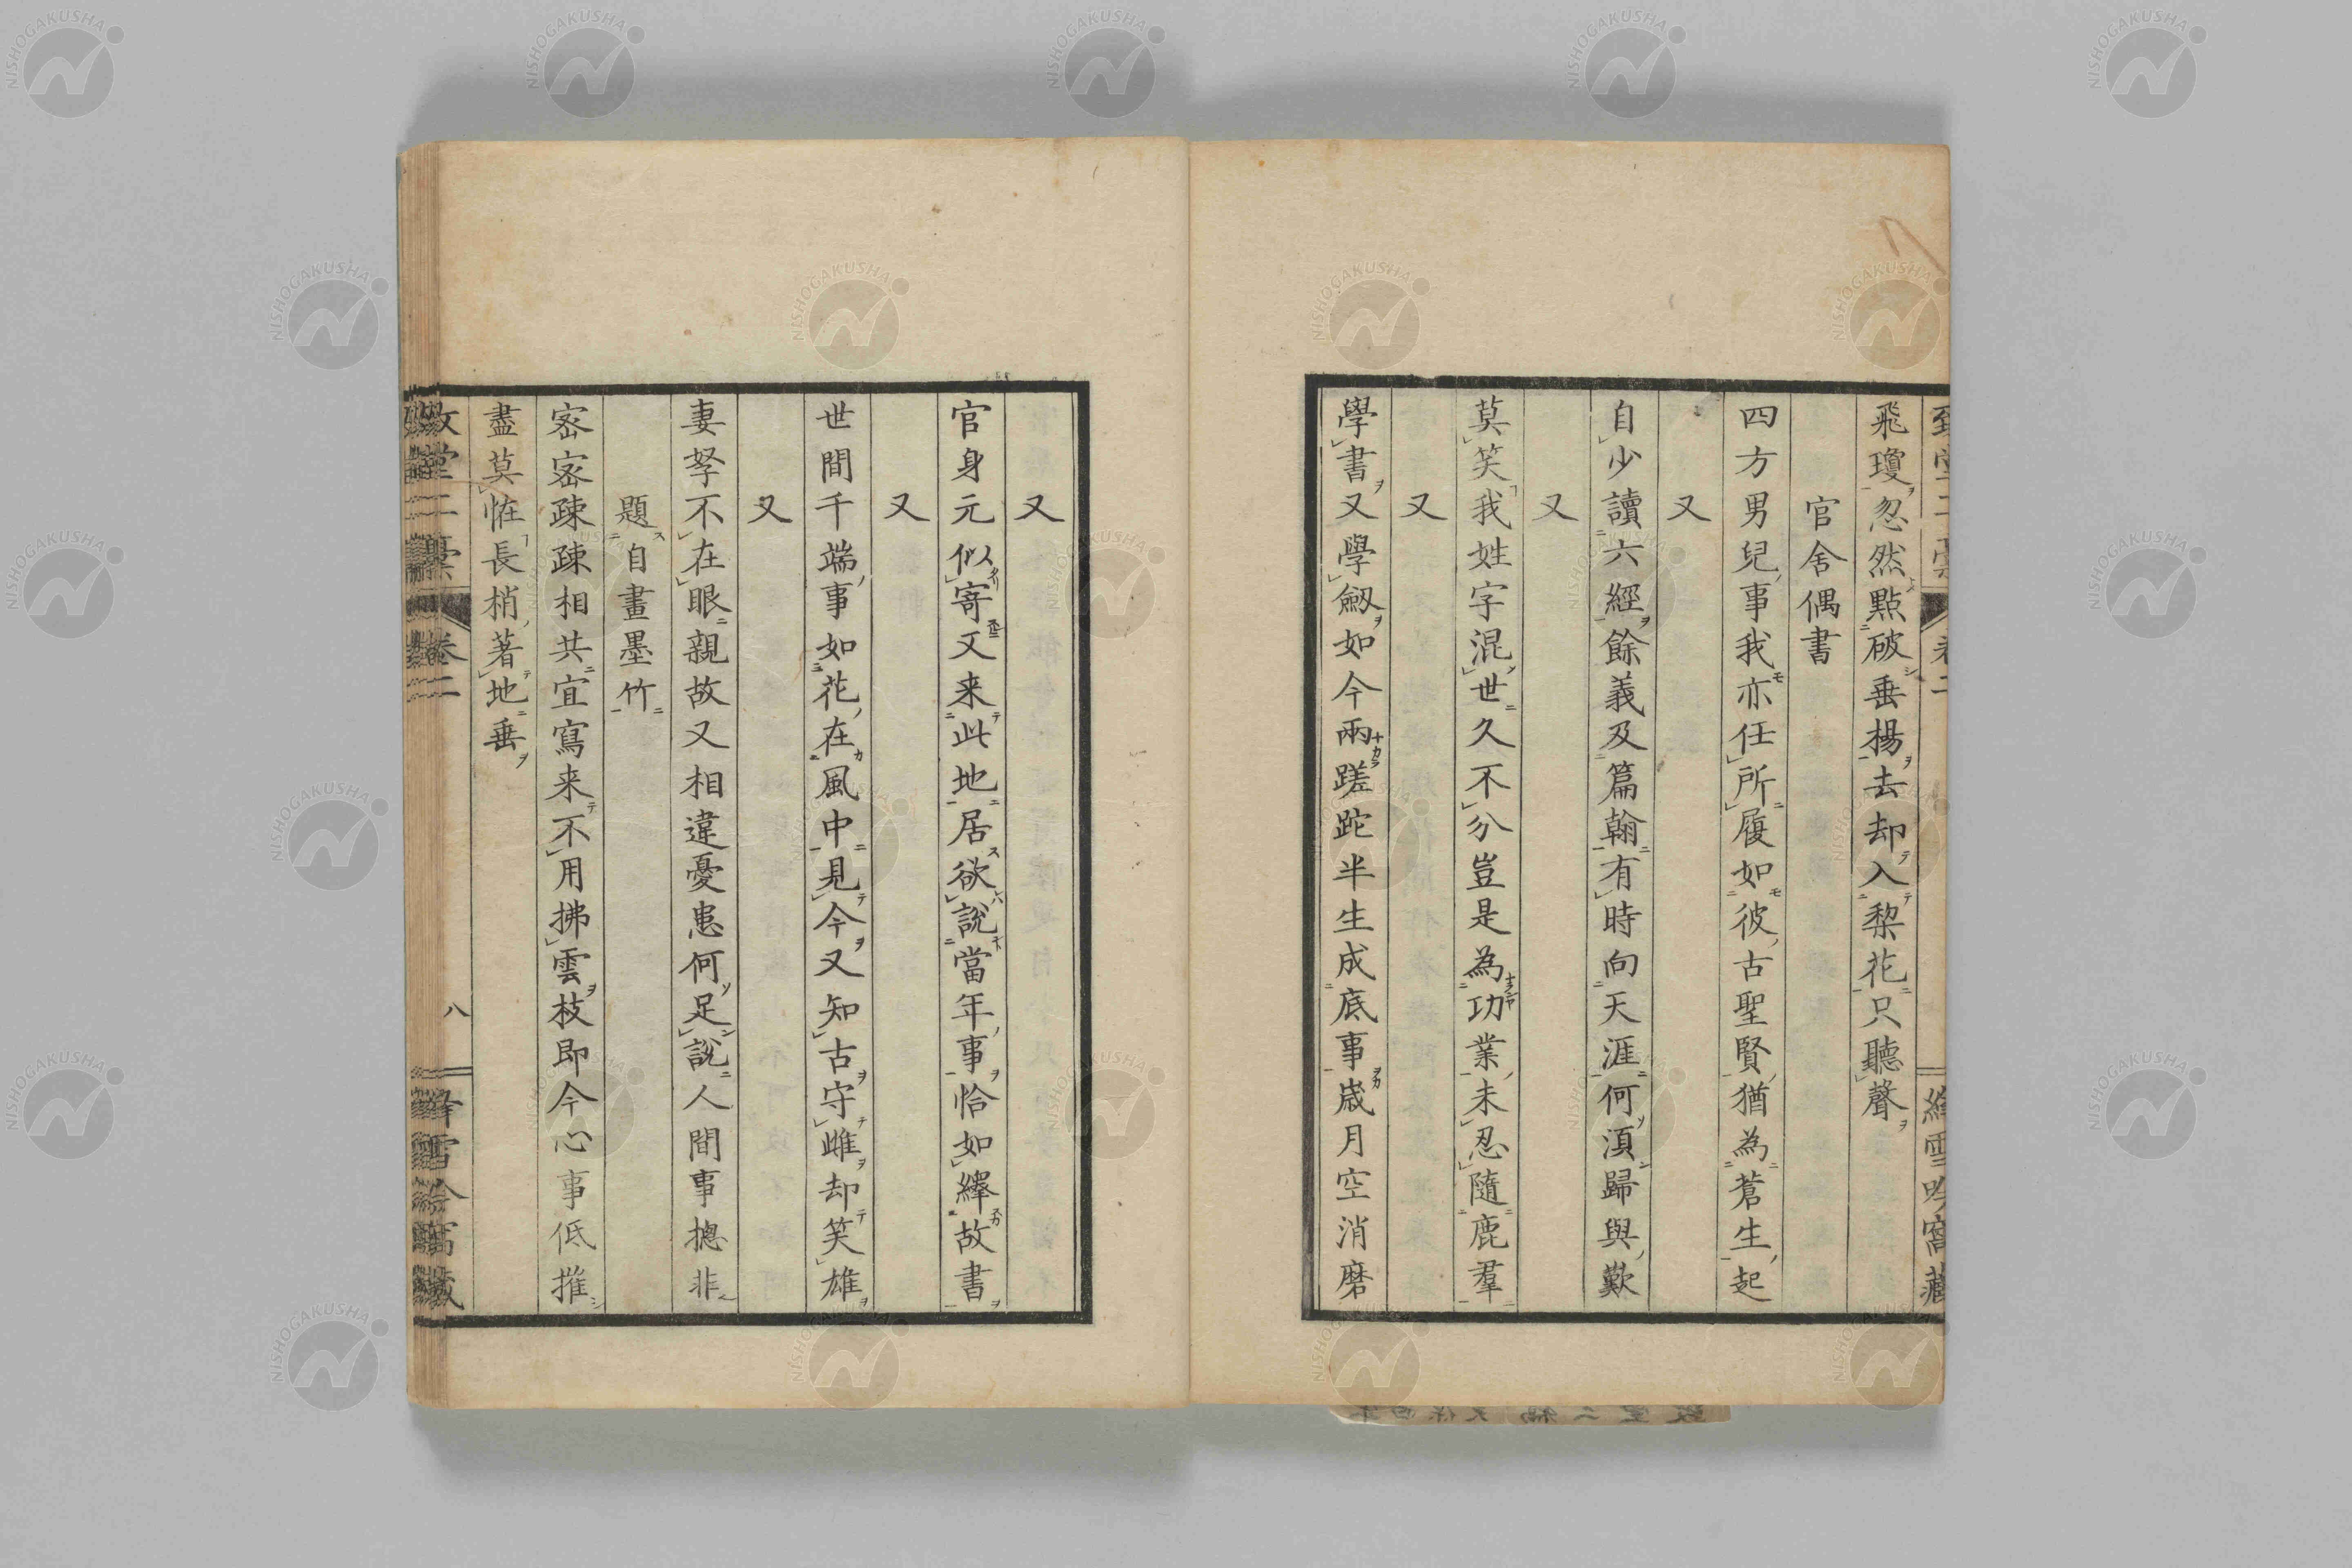 飛瓊忽然點破垂楊去却入梨花只聽聲
官舍偶書
四方男兒事我亦任所履如彼古聖賢猶為蒼生起
又
自少讀六經餘義及篇翰有時向天涯何須歸與歎
又
莫笑我姓字混世久不分豈是為功業未忍隨鹿羣
又
學書又學劔如今兩蹉跎半生成底事歳月空消磨
又
官身元似寄又来此地居欲說當年事恰如繹故書
又
世間千端事如花在風中見今又知古守雌却笑雄
又
妻孥不在眼親故又相違憂患何足說人間事摠非
題自畫墨竹
密密疎疎相共宜寫来不用拂雲枝即今心事低摧
盡莫恠長梢著地垂
卷二
八
NISHOGAKUSHA